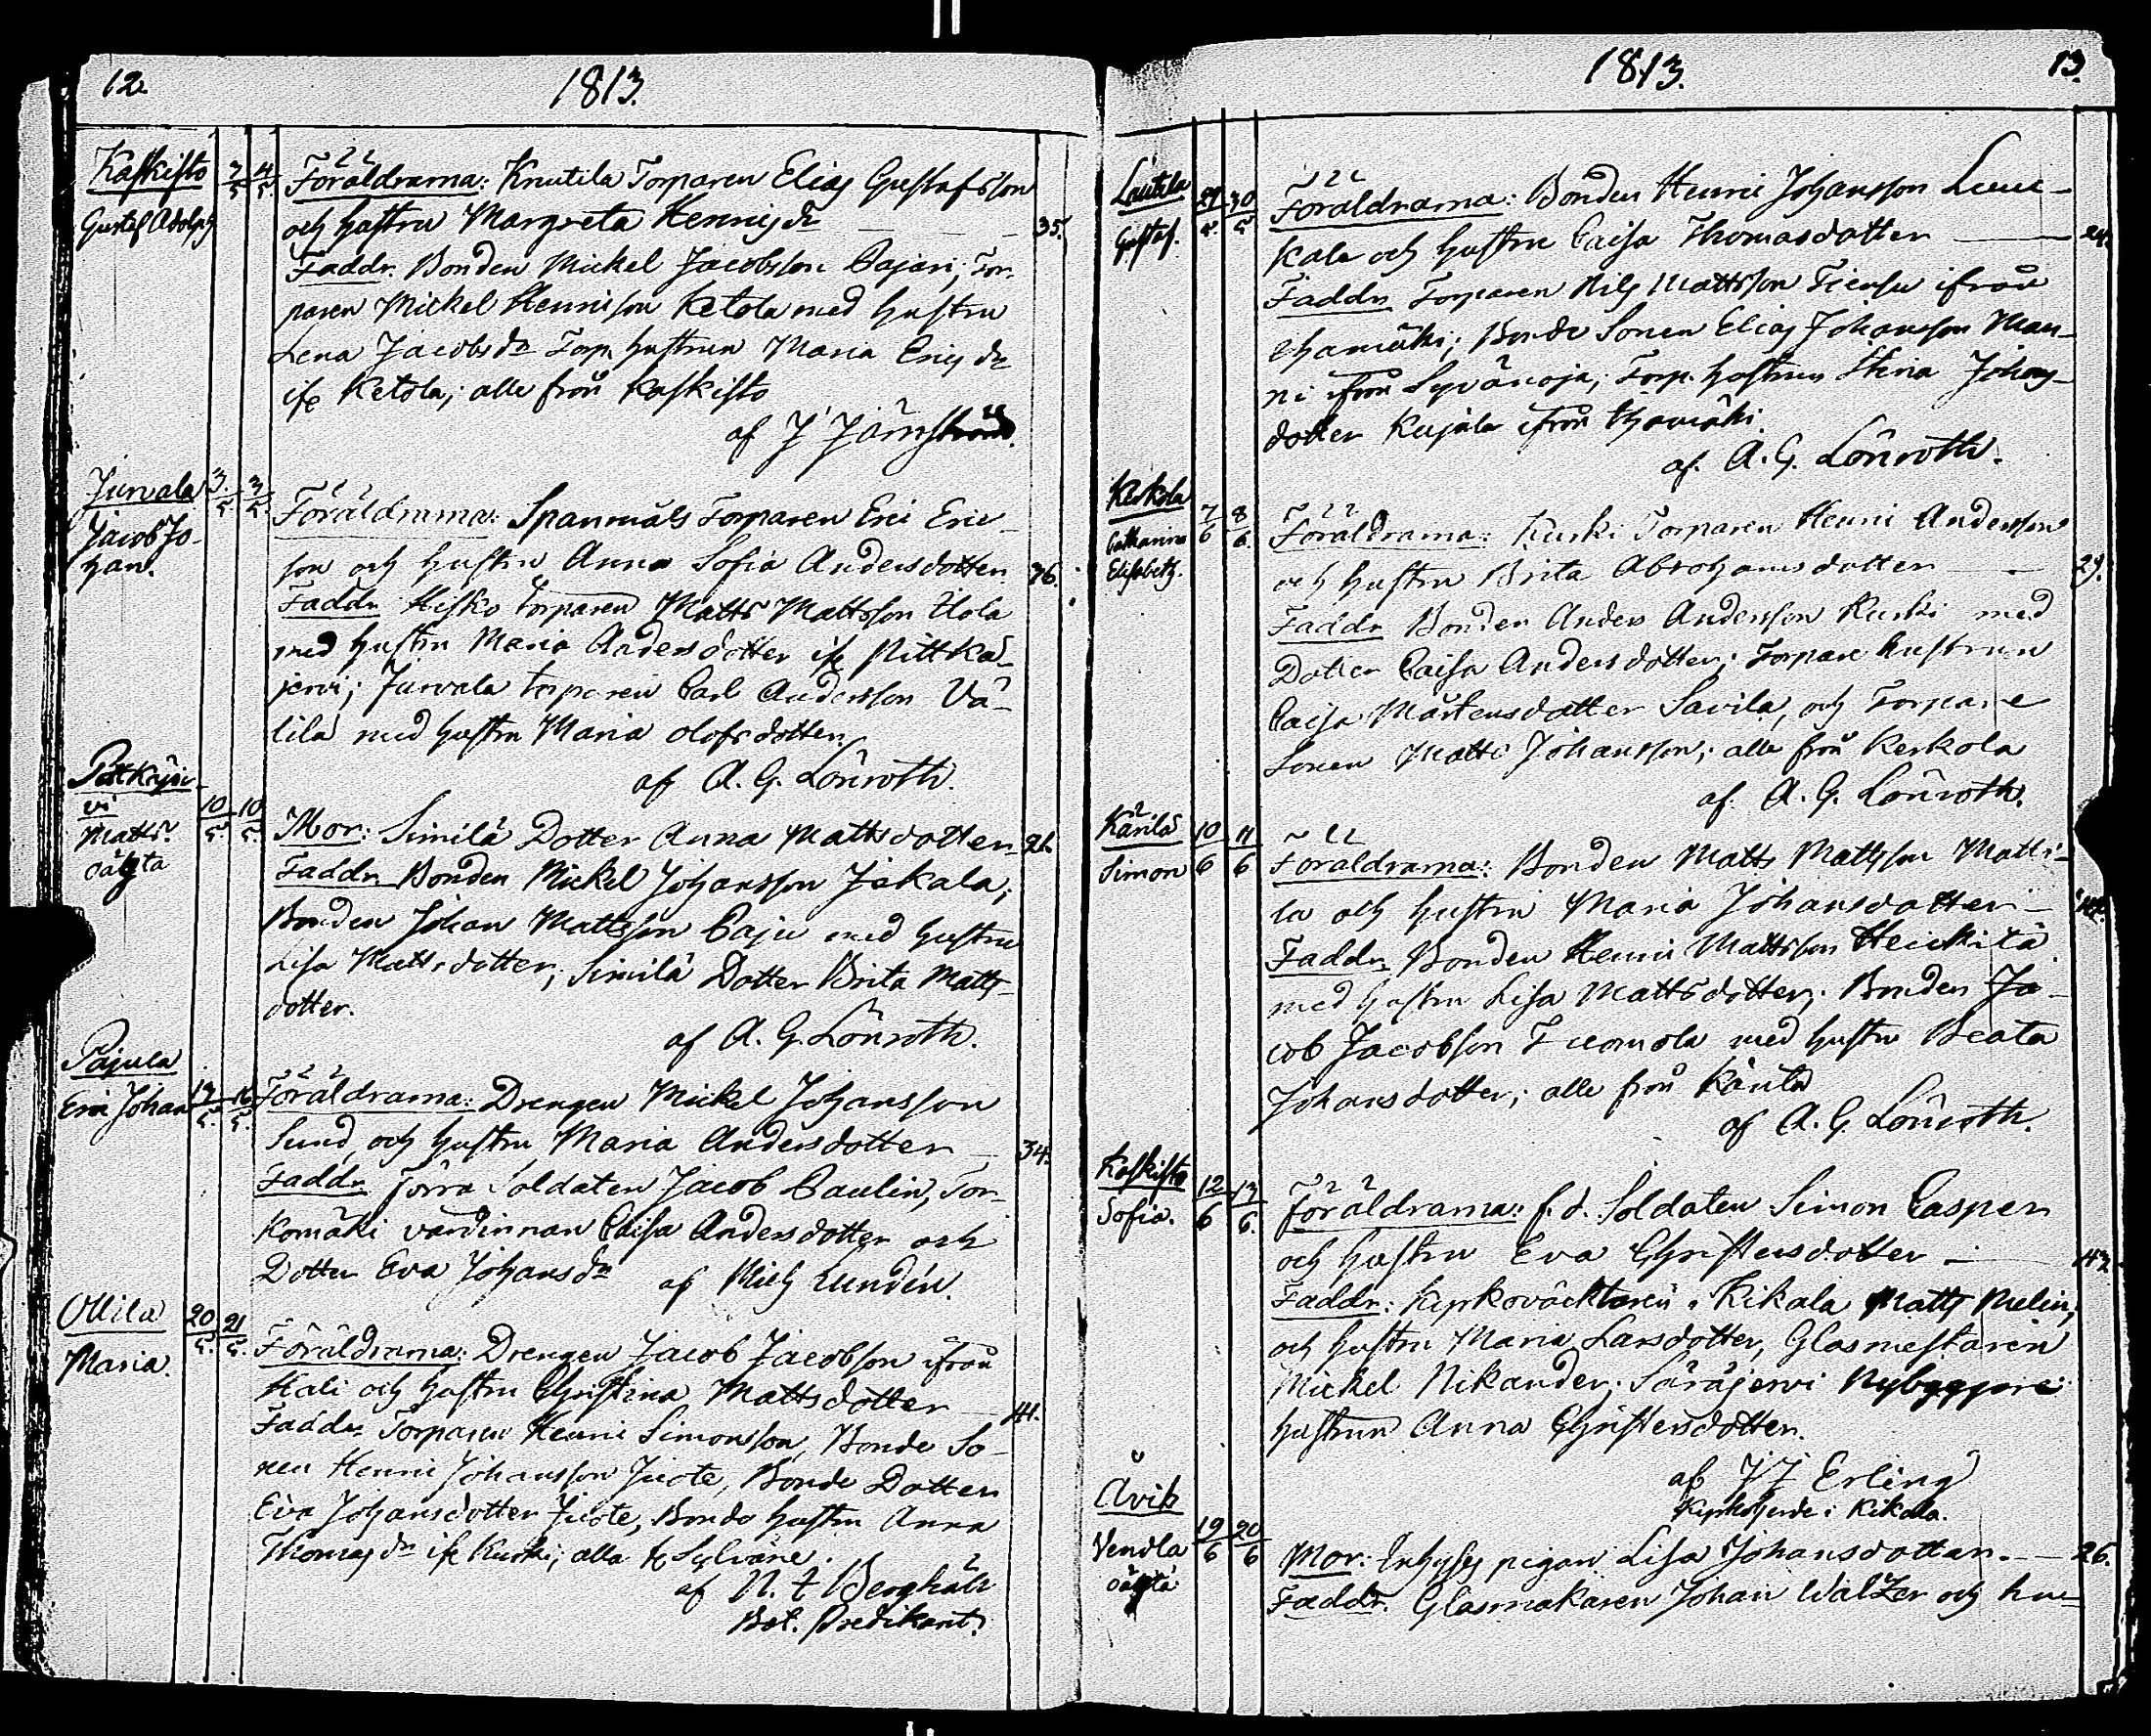 12.
1813.
Kaskisto
Gustaf Adolph
3/5 4/5
Föräldrarna: Knutila Torparen Elias Gustafsson
och hustru Margreta Henrigsdr 35.
Faddr. Bonden Mickel Jacobsson Pajari; Tor-
paren Mickel Henrisson Ketola med hustru
Lena Jacobsdr Torp. hustrun Maria Ericsdr
ifr Ketola; alle från Kaskisto
af J
Jurvala
Jacob Jo-
han.
3/5 3/5
Föräldrarna: Spanmäls Torparen Eric Eric-
son och hustru Anna Sofia Andersdotter 36.
Faddr Torparen Matts Mattsson Uola
med hustru Maria Andersdotter ifr Pittkä-
jervi; Jurvala torparen Carl Andersson Vä-
lilä med hustru Maria Olofsdotter.
af A. G. Lönroth.
Pitkäjer-
vi
Matts
oägta
10/5 10/5
Mor: Similä Dotter Anna Mattsdotter 21.
Faddr Bonden Mickel Johansson Jakala;
Bonden Johan Mattsson Paju med hustru
Lisa Mattsdotter; Similä Dotter Brita Matts-
dotter.
af A. G. Lönroth.
Pajula
Eric Johan
Föräldrarna: Drengen Mickel Johansson
Sund, och hustru Maria Andersdotter 34.
Faddr Förra Soldaten Jacob Paulin, Tor-
komäki värdinnan Caisa Andersdotter och
Dotter Eva Johansdr af Mich Lundén.
Ollila
Maria.
20/5 21/5
Föräldrarna: Drengen Jacob Jacobsson ifrån
Hali och hustru Christina Mattsdotter 41.
Faddr Torparen Henric Simonsson, Bonde So-
nen Henric Johansson Juote, Bonde Dotter
Eva Johansdotter Juote, Bonde hustru Anna
Thomasdr ifr Kurki; alla fr Sylväne.
af N. J Berghäll
Bat. Predikant.
1813.
13.
Lautela
Gustaf.
29/5 30/5
Föräldrarna: Bonden Henric Johansson Luur-
kala och hustru Caisa Thomasdotter 24.
Faddr Torparen Nils Mattsson ifrån
Bonde Sonen Elias Johansson Man-
ni ifrån Syvänoja; Torp. hustrun Stina Johans-
dotter Kujala ifrån
af. A. G. Lönroth.
Kerkola
Catharina
Elisabeth.
7/6 8/6
Föräldrarna: Kurki Torparen Henric Andersson
och hustru Brita Abrahamsdotter 29.
Faddr Bonden Anders Andersson Kurki med
Dotter Caisa Andersdotter; Torpare hustrun
Caisa Mårtensdotter Savila, och Torpare
Sonen Matts Johansson; alle från Kerkola
af. A. G. Lönroth.
Kärilä
Simon
10/6 11/6
Föräldrarna: Bonden Matts Mattsson Matti-
la och hustru Maria Johansdotter
Faddr Bonden Henric Mattsson Heickilä
med hustru Lisa Mattsdotter; Bonden Ja-
cob Jacobsson Tuomola med hustru Beata
Johansdotter; alle från Kärilä
af A. G. Lönroth.
Koskisto
Sofia.
12/6 13/6
Föräldrarna: f.d. Soldaten Simon Casper
och hustru Eva Christersdotter 43.
Faddr: Kyrkoväcktaren i Kikala Matts Melin,
och hustru Maria Larsdotter, Glasmestaren
Mickel Nikander; Särajervi Nybyggare
hustrun Anna Christersdotter.
af J J Erling
Kyrkoherde i Kikala.
Åvik
Vendla
oägta
19/6 20/6
Mor: Inhyses pigan Lisa Johansdotter. 26.
Faddr: Glasmakaren Johan Walzer och hu-